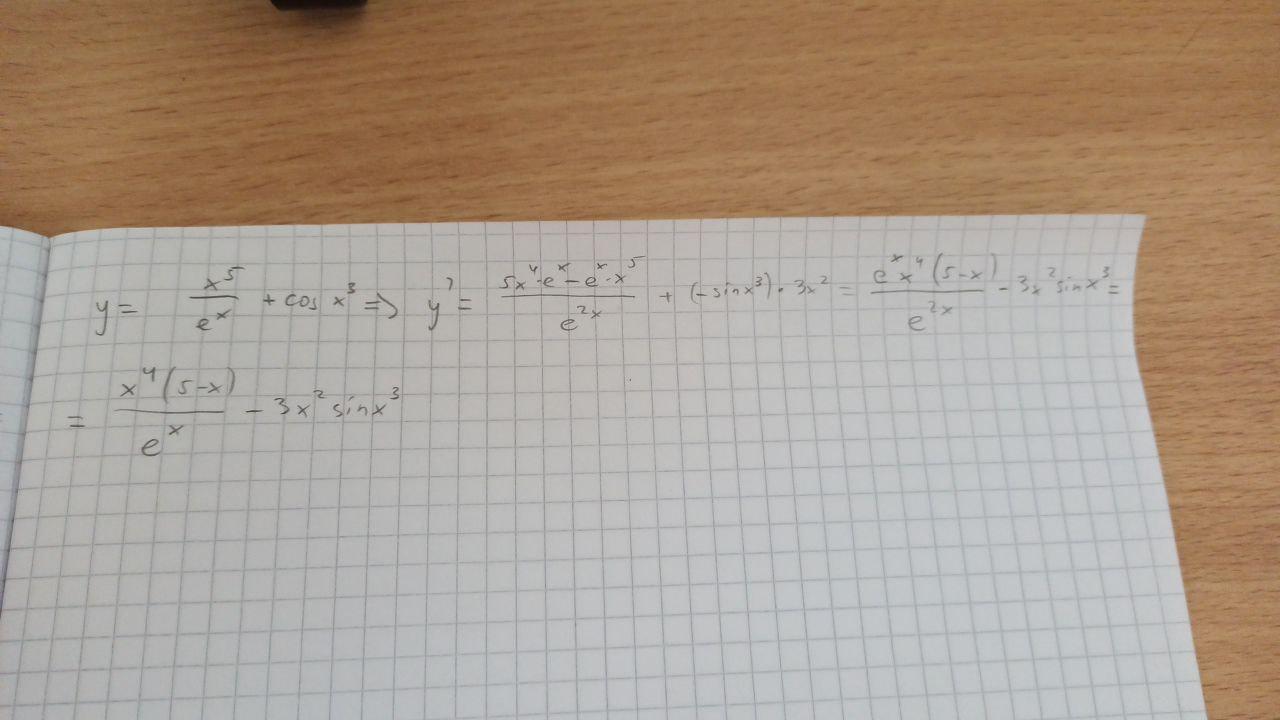 y = x⁵/eˣ + cos x³ => y' = (5x⁴·eˣ - eˣ·x⁵)/e²ˣ + (-sinx³)·3x² = eˣx⁴(5-x)/e²ˣ - 3x² sinx³ =
= x⁴(5-x)/eˣ - 3x² sinx³